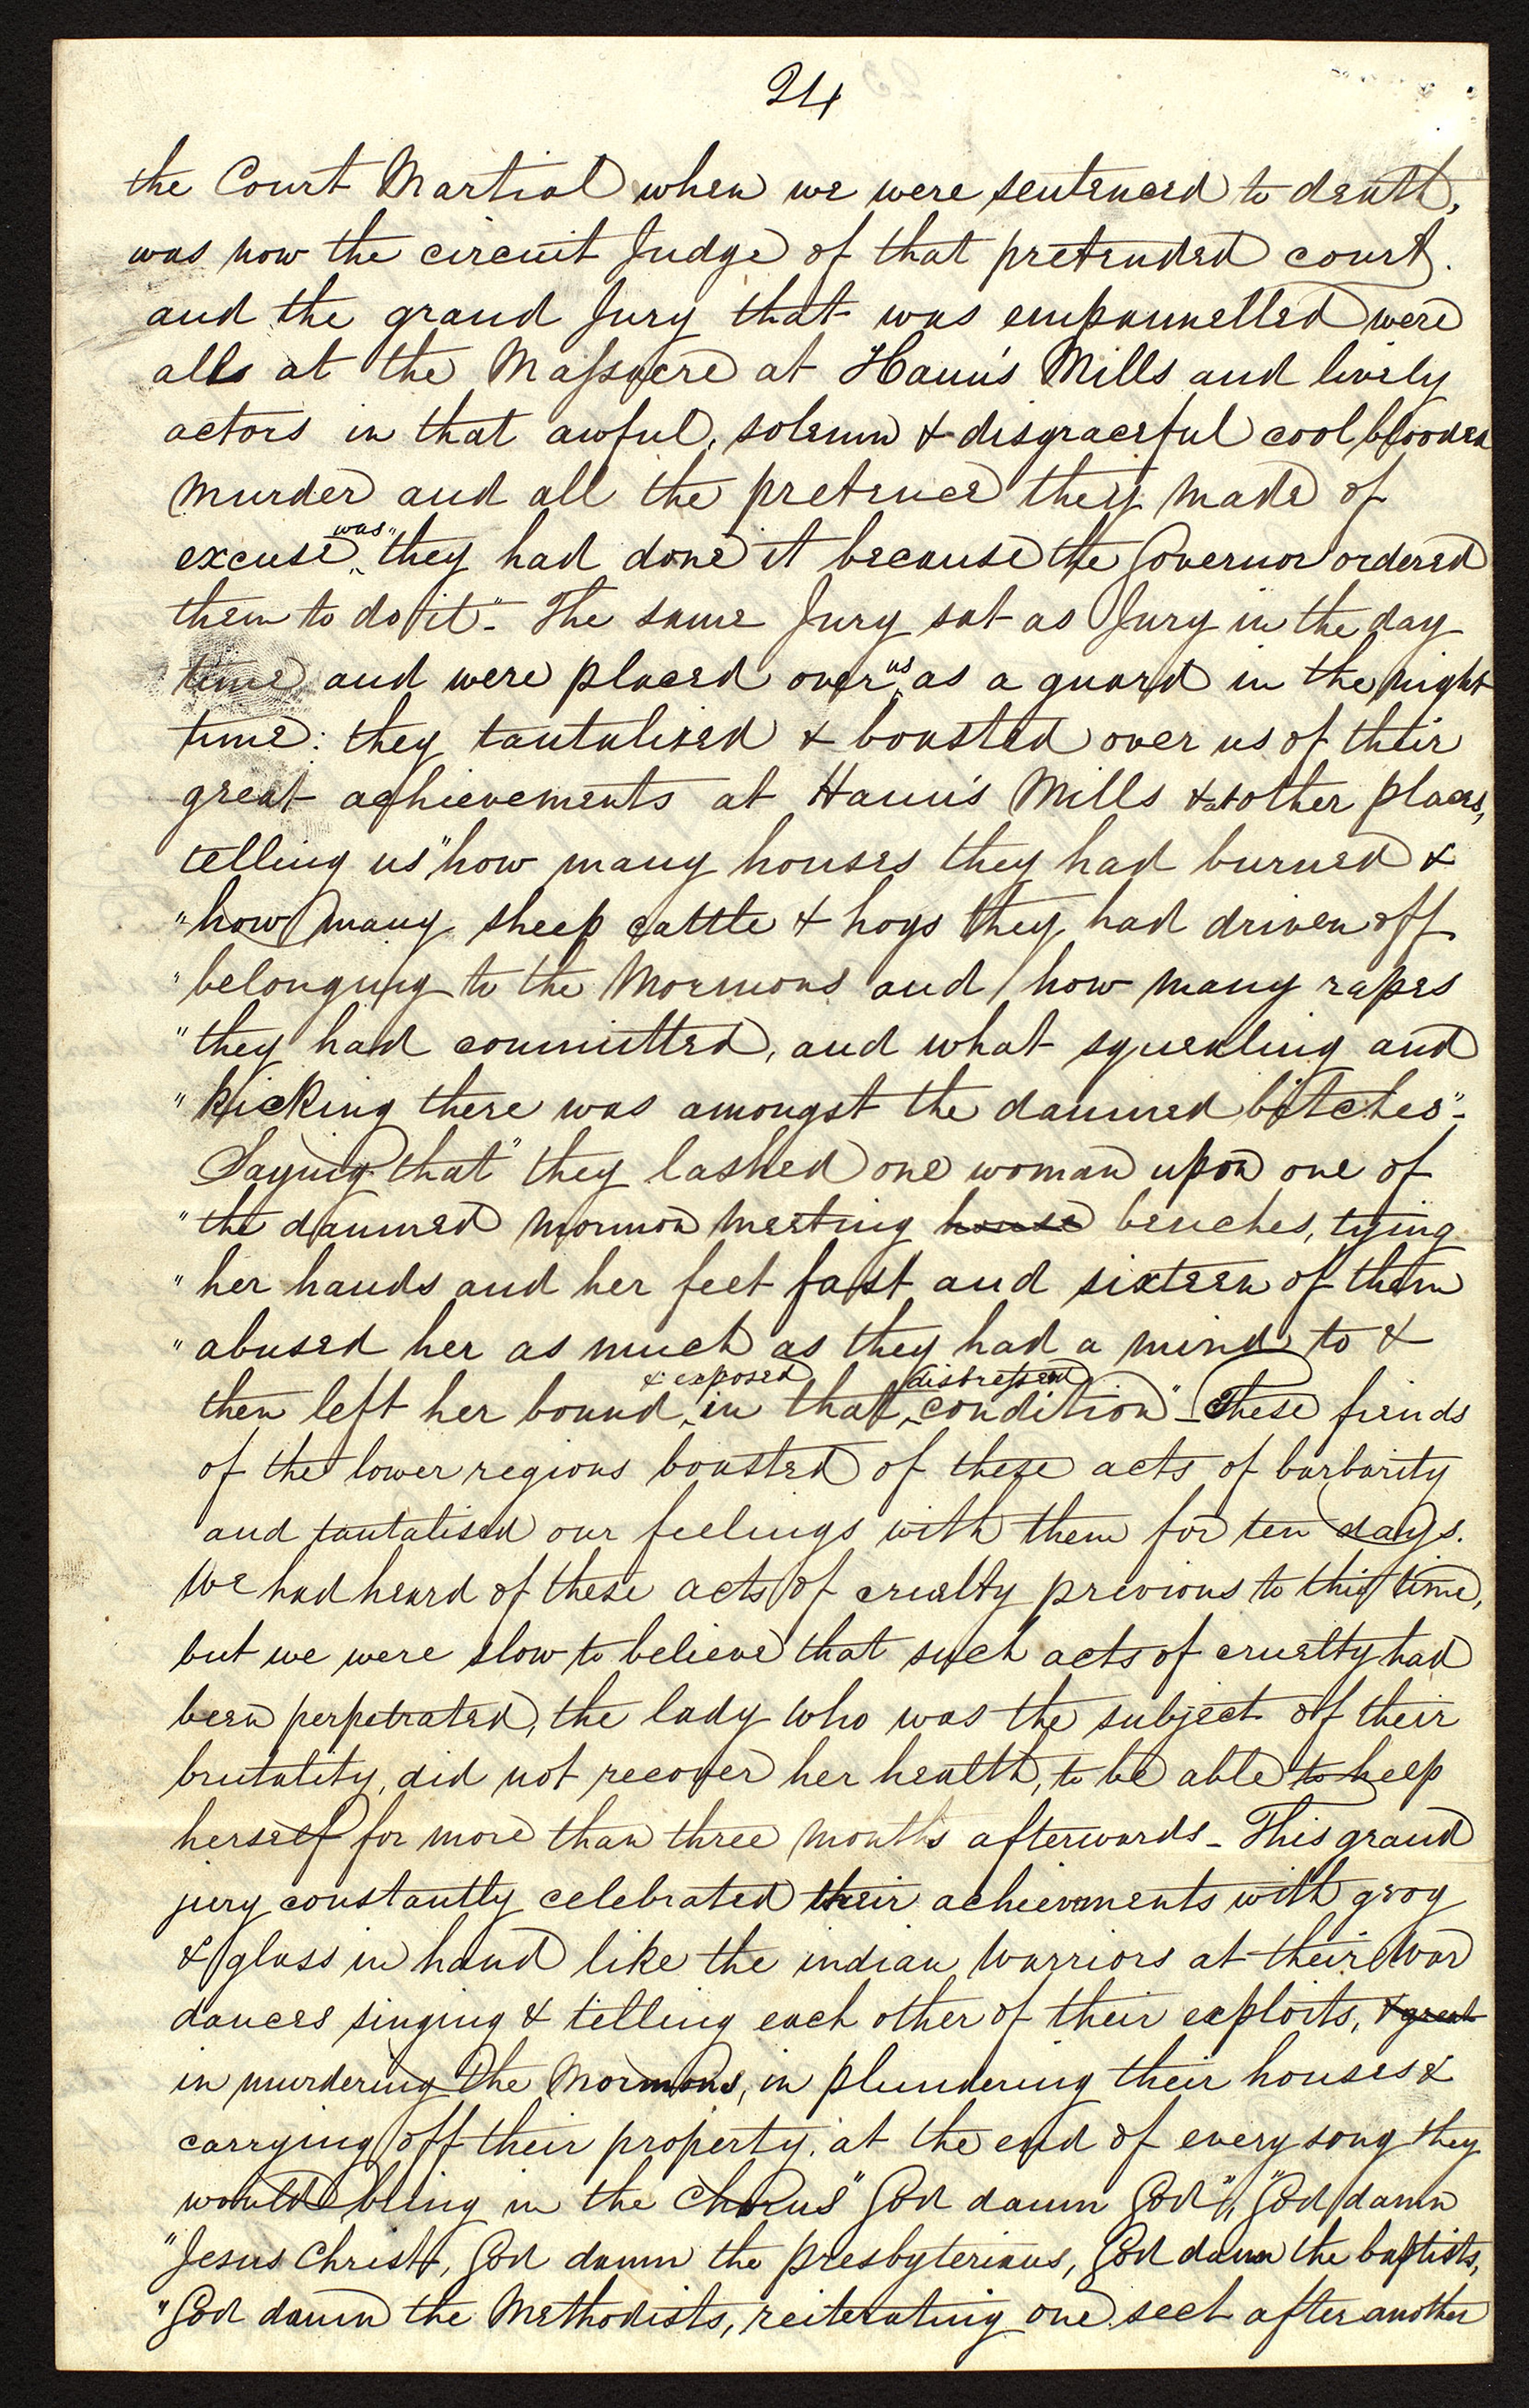 24
the Court Martial when we were sentenced to death,
was now the circuit Judge of that pretended court.
and the grand Jury that was empannelled were
all at the Massacre at Haun's Mills and lively
actors in that awful, solemn & disgraceful cool blooded
murder and all the pretence they made of
excuse was "they had done it because the Governor ordered
them to do it"- The same Jury sat as Jury in the day
time and were placed over us as a guard in the night
time: they tantalised & boasted over us of their
great achievements at Haun's Mills & at other places,
telling us "how many houses they had burned &
"how many sheep cattle & hogs they had driven off
"belonging to the Mormons and how many rapes
"they had committed, and what squealing and
"kicking there was amongst the damned bitches"-
Saying that "they lashed one woman upon one of
"the damned mormon meeting house benches, tying
"her hands and her feet fast and sixteen of them
"abused her as much as they had a mind to &
then left her bound & exposed in that distressed condition"- These fiends
of the lower regions boasted of these acts of barbarity
and tantalised our feelings with them for ten days.
We had heard of these acts of cruelty previous to this time,
but we were slow to believe that such acts of cruelty had
been perpetrated, the lady who was the subject of their
brutality, did not recover her health, to be able to help
herself for more than three months afterwards- This grand
jury constantly celebrated their achievements with grog
& glass in hand like the indian Warriors at their War
dances singing & telling each other of their exploits, & great
in murdering the Mormons, in plundering their houses &
carrying off their property. at the end of every song they
would bring in the chorus "God damn God", "God damn
"Jesus Christ, God damn the presbyterians, God damn the baptists,
"God damn the Methodists, reiterating one sect after another